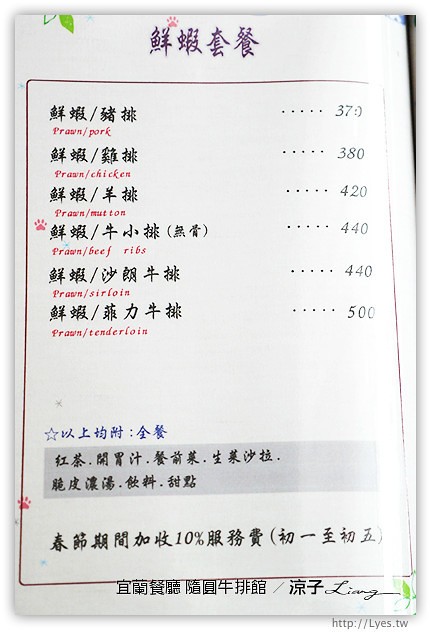 鮮蝦套餐
鮮蝦/豬排 ····· 370
Prawn/pork
鮮蝦/雞排 ····· 380
Prawn/chicken
鮮蝦/羊排 ····· 420
Prawn/mutton
鮮蝦/牛小排(無骨) ····· 440
Prawn/beef ribs
鮮蝦/沙朗牛排 ····· 440
Prawn/sirloin
鮮蝦/菲力牛排 ····· 500
Prawn/tenderloin
☆以上均附:全餐
紅茶.開胃汁.餐前菜.生菜沙拉.
脆皮濃湯.飲料.甜點
春節期間加收10%服務費(初一至初五)
宜蘭餐廳 隨圓牛排館 ／涼子Liang
http://Lyes.tw